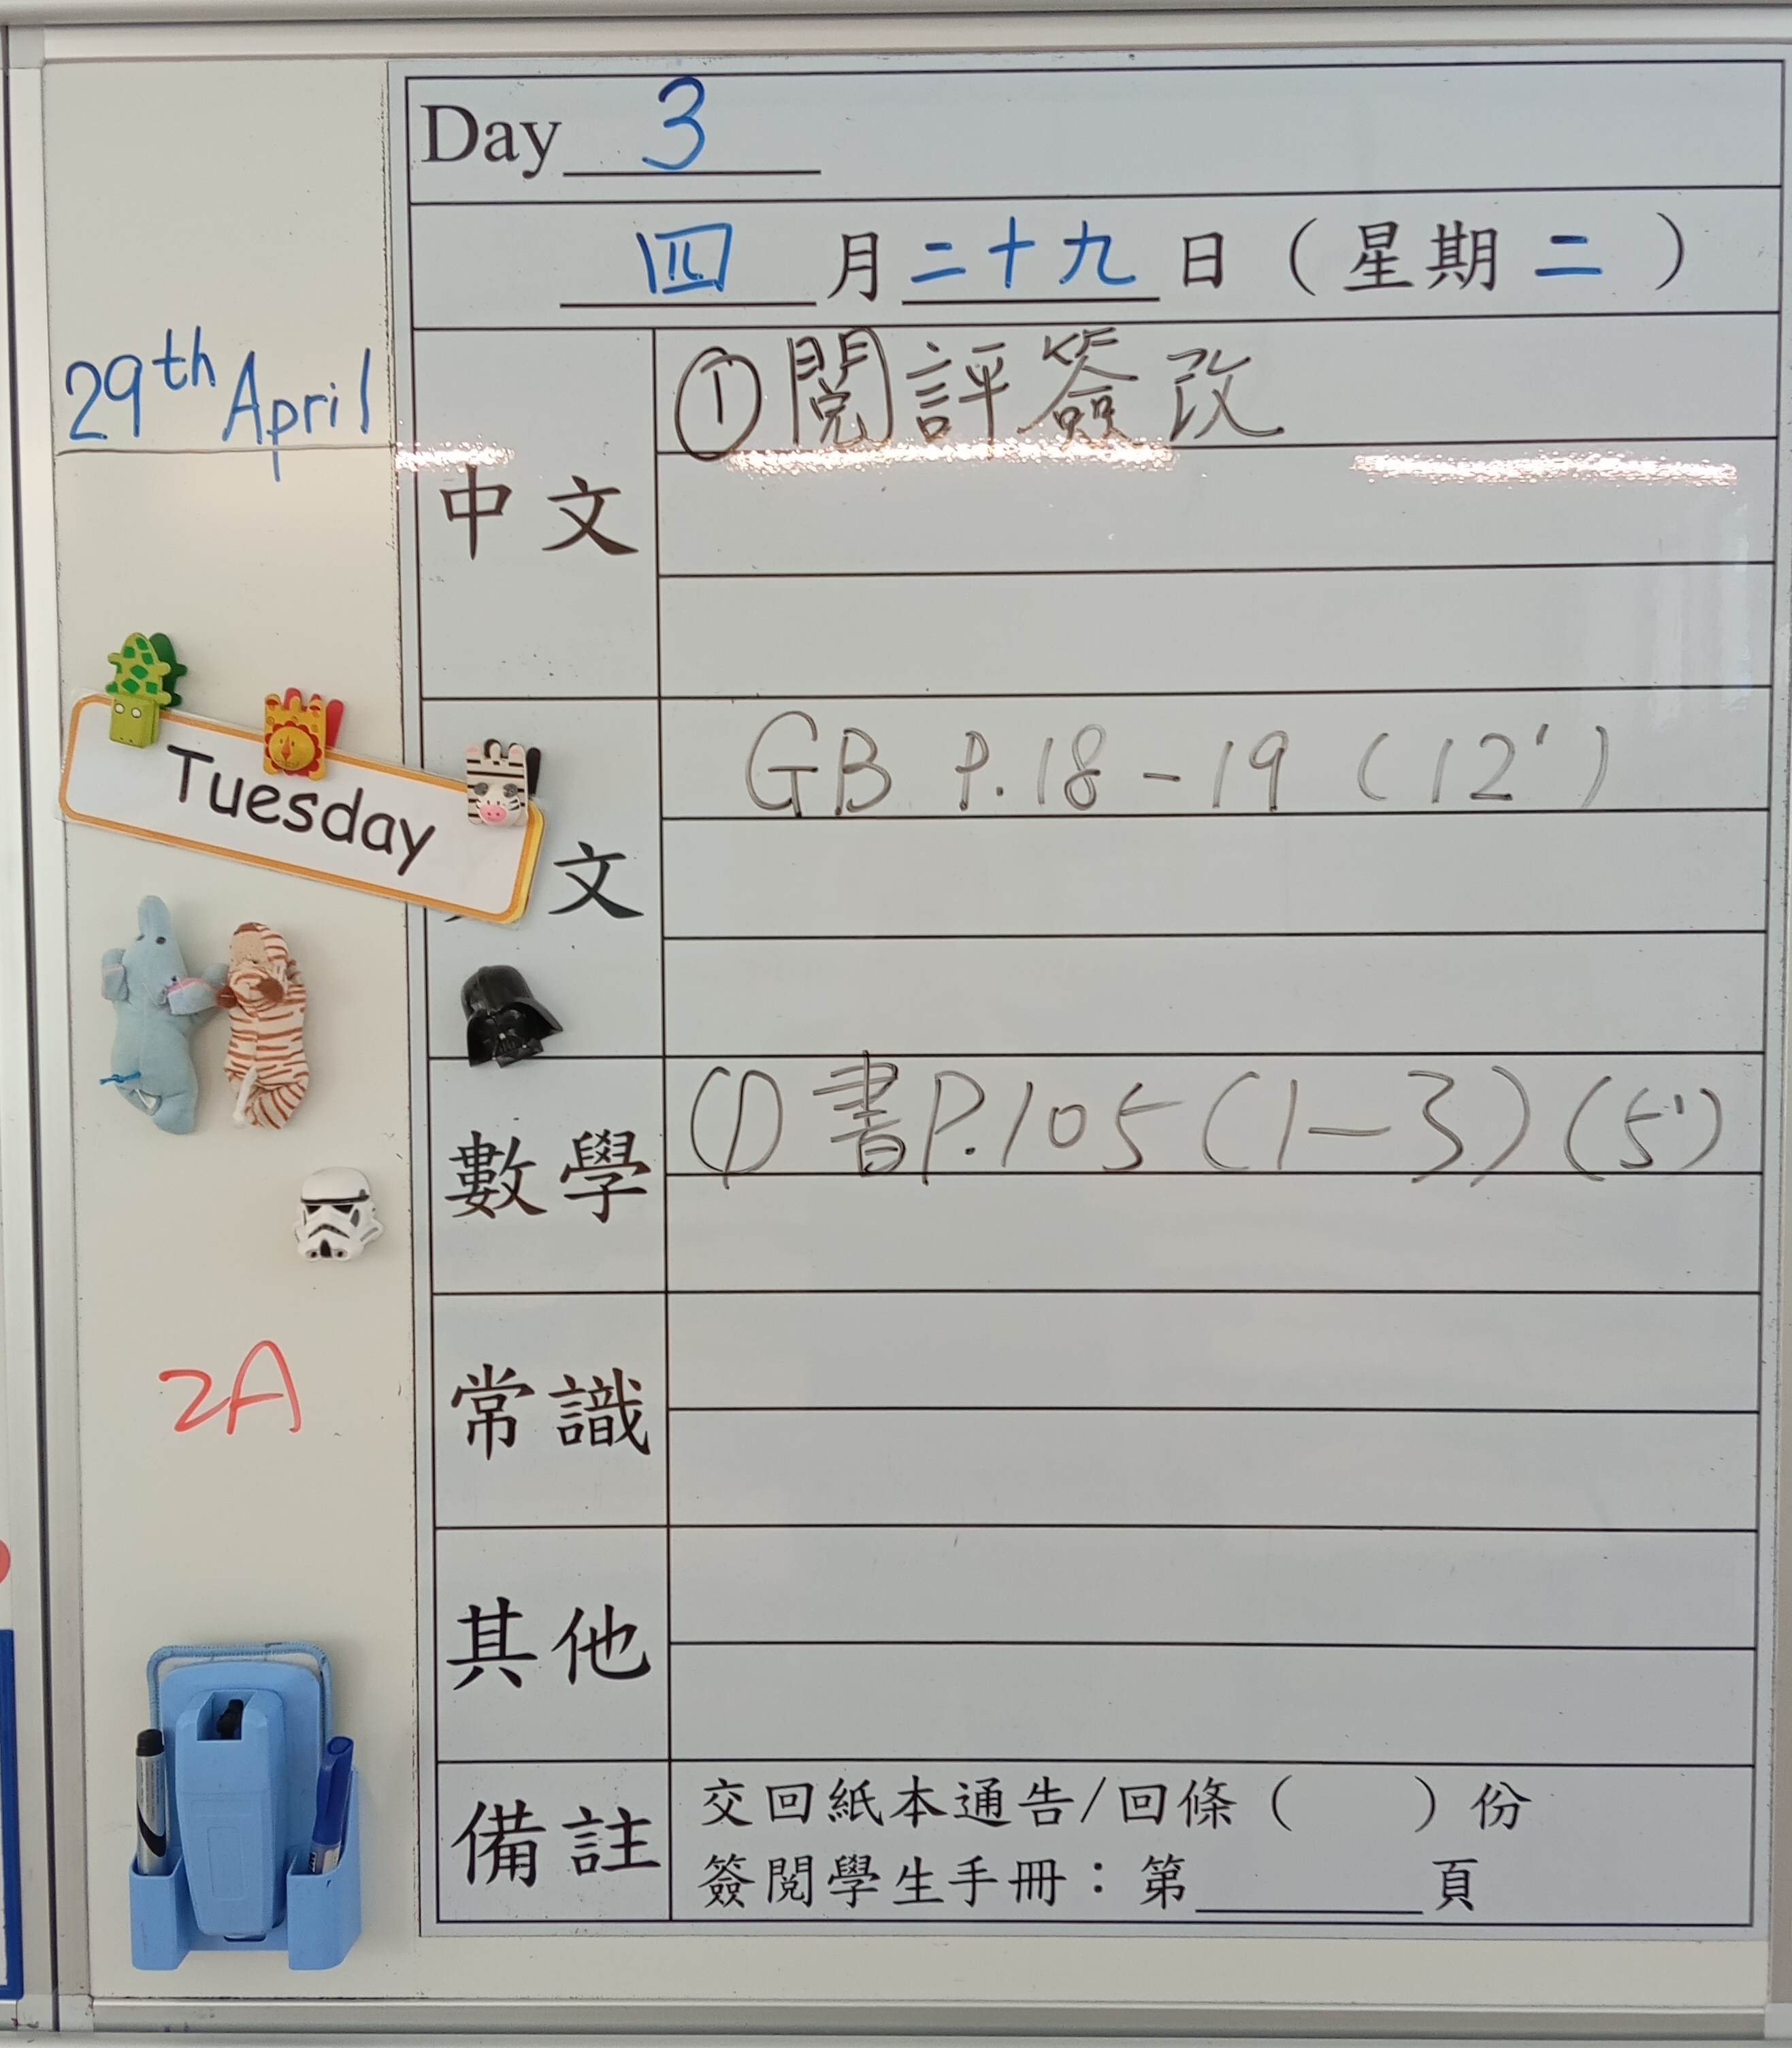 Day 3
四 月 二十九 日 ( 星期 二 )
29th April
中文
①閱評簽改
Tuesday
文
GB P.18-19 (12')
數學
① 書P.105 (1-3) (5')
2A
常識
其他
備註
交回紙本通告/回條 (     ) 份
簽閱學生手冊：第________頁